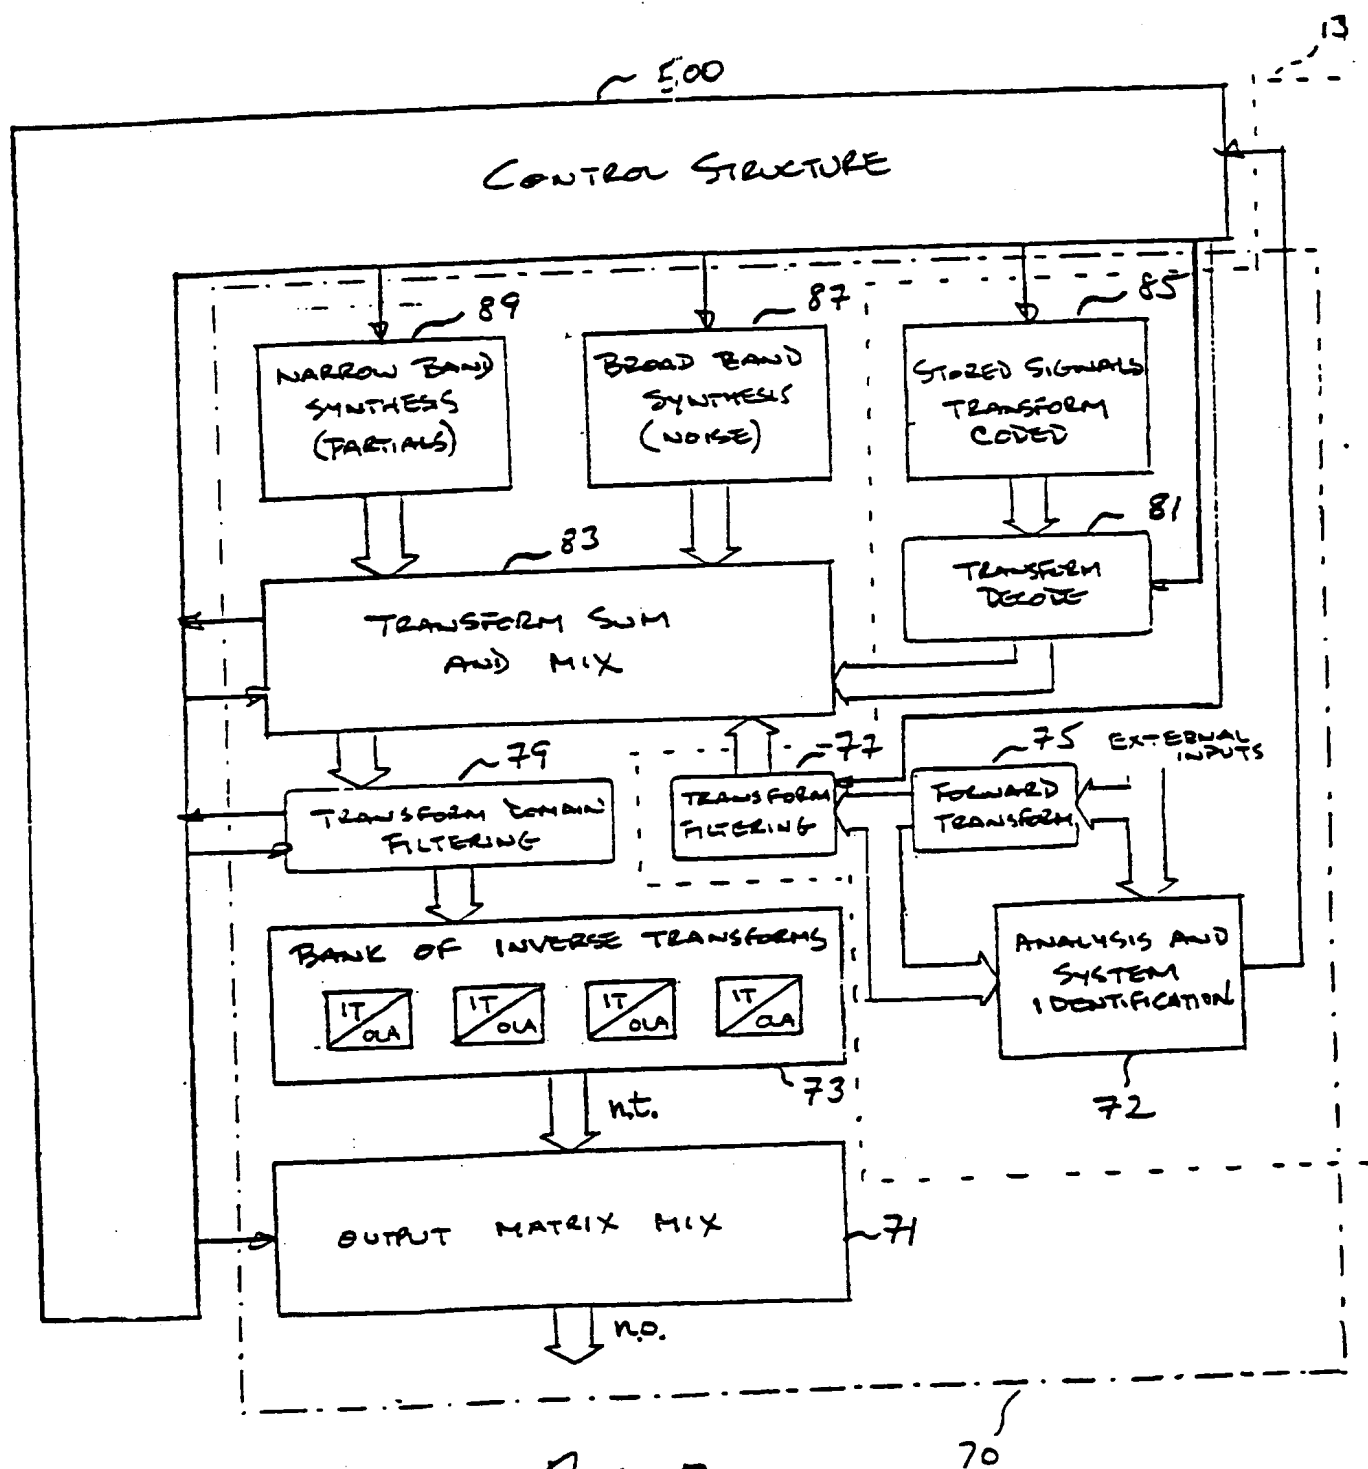 13
500
CONTROL STRUCTURE
89
87
85
NARROW BAND
SYNTHESIS
(PARTIALS)
BROAD BAND
SYNTHESIS
(NOISE)
STORED SIGNALS
TRANSFORM
CODED
81
TRANSFORM
DECODE
83
TRANSFORM SUM
AND MIX
79
77
75
EXTERNAL
INPUTS
TRANSFORM DOMAIN
FILTERING
TRANSFORM
FILTERING
FORWARD
TRANSFORM
BANK OF INVERSE TRANSFORMS
IT
OLA
IT
OLA
IT
OLA
IT
OLA
73
ANALYSIS AND
SYSTEM
IDENTIFICATION
72
n.t.
OUTPUT MATRIX MIX
71
n.o.
70